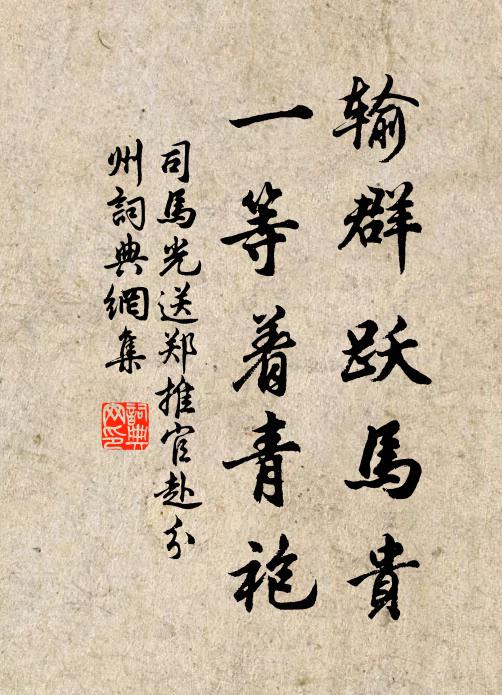 输群跃馬貴
一等着青袍
司馬光送郑推官赴汾
州詞典網集
詞典网印